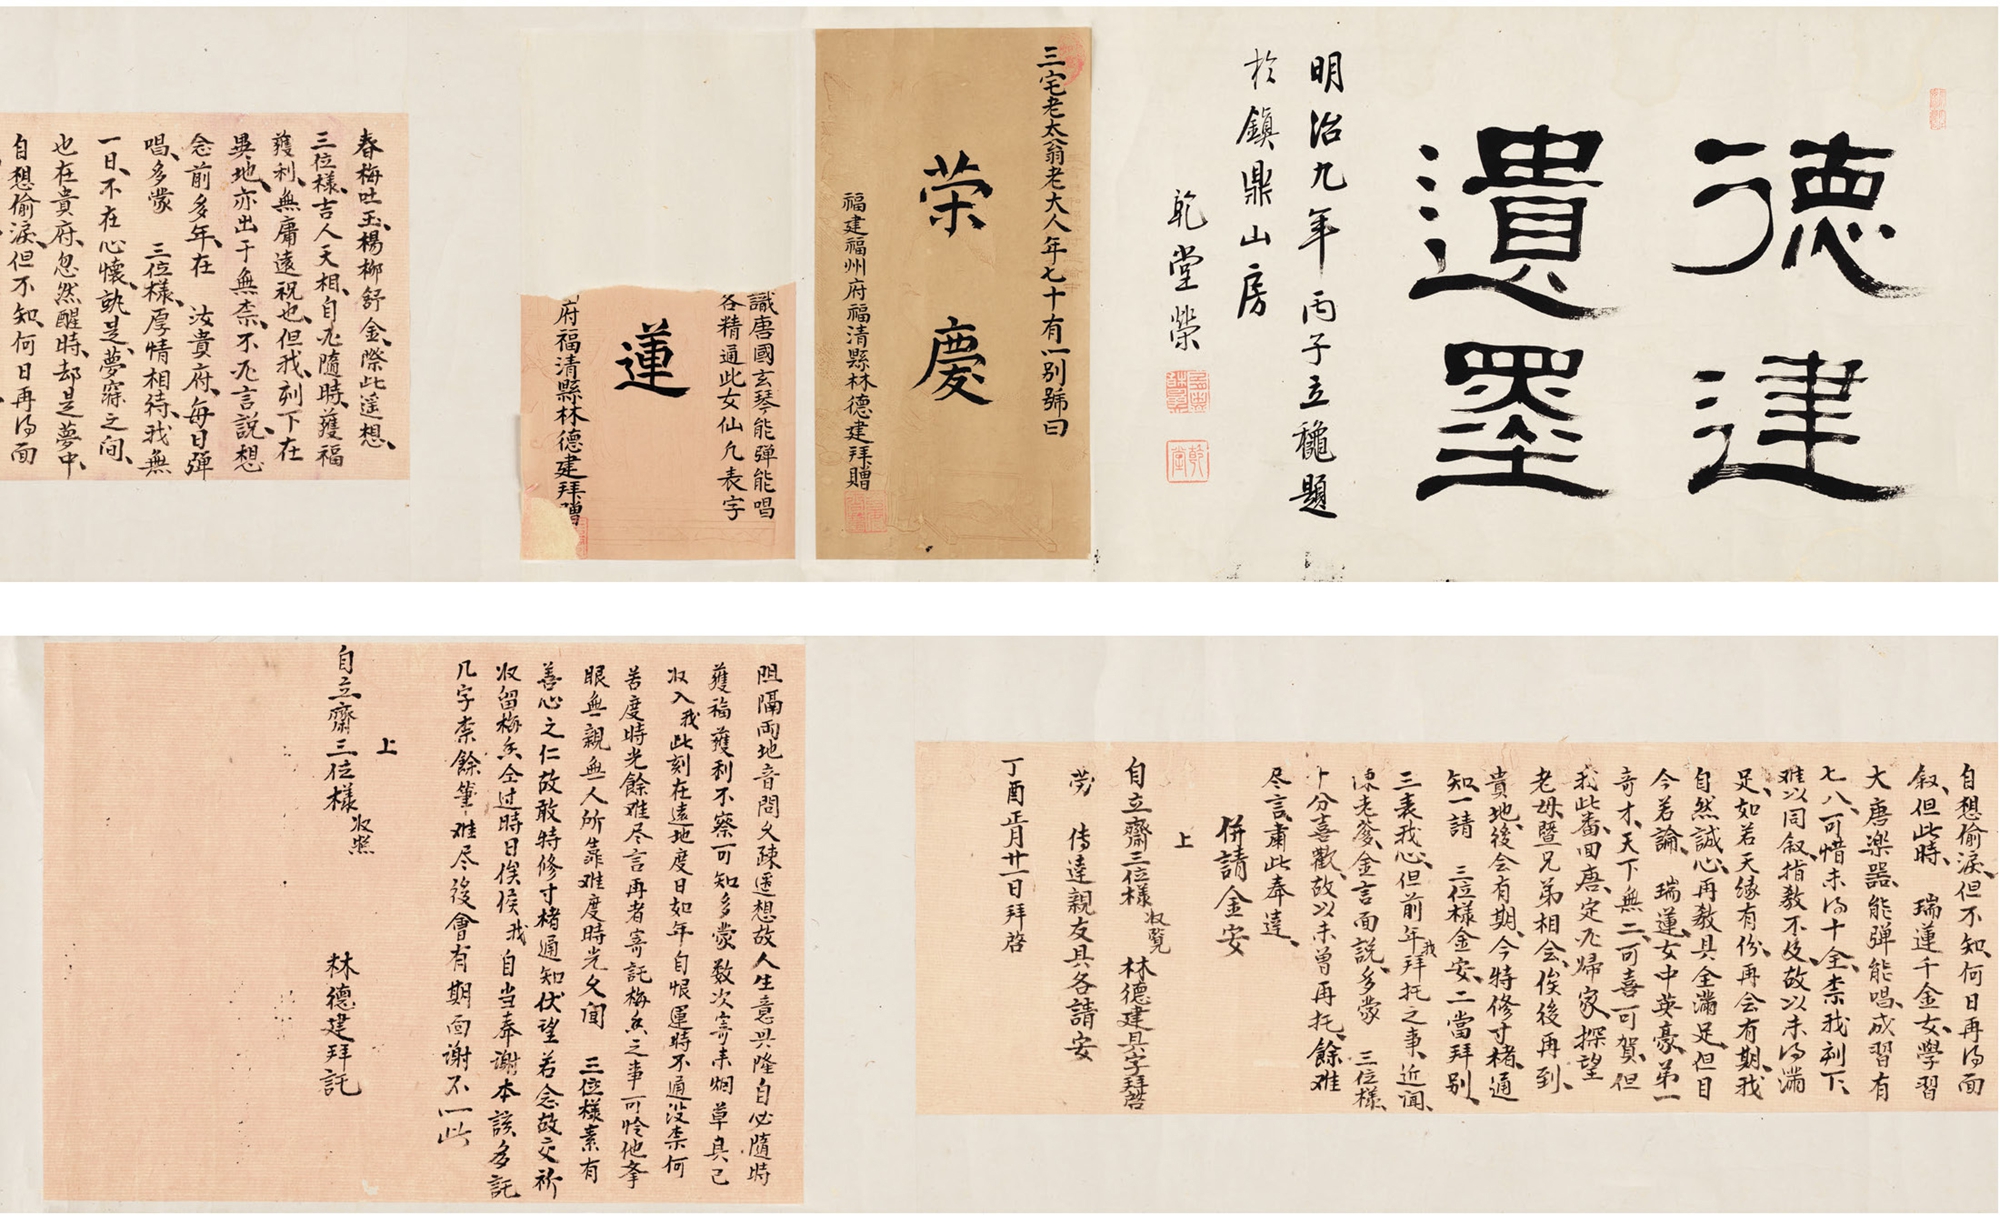 德建
遺墨
明治九年丙子立穐題
於鎮鼎山房
乾堂榮
三宅老太翁老大人年七十有八別號曰
榮慶
福建福州府福清縣林德建拜贈
識唐國玄琴能彈能唱
各精通此女仙凣表字
蓮
府福清縣林德建拜贈
春梅吐玉楊柳舒金際此遥想
三位樣吉人天相自凣隨時獲福
獲利無庸遠祝也但我刻下在
異地亦出于無柰不凣言說想
念前多年在 汝貴府每日弹
唱多蒙 三位樣厚情相待我無
一日不在心懷孰是夢寐之间
也在貴府忽然醒時却是夢中
自想偷淚但不知何日再得面
自想偷淚但不知何日再得面
叙但此時 瑞蓮千金女學習
大唐樂器能弹能唱成習有
七八可惜未得十全柰我刻下
难以同叙指教不及故以未得滿
足如若天缘有份再会有期我
自然誠心再教具全滿足但目
今若論 瑞蓮女中英豪第一
奇才天下無二可喜可賀但
我此番回唐定凣歸家探望
老母暨兄弟相会俟後再到
貴地後会有期今特修寸楮通
知一請 三位樣金安二當拜别
三義我心但前年我拜托之事近闻
陳老爹金言面說多蒙 三位樣
十分喜歡故以未曾再托餘难
尽言肅此奉達
併請金安
上
自立齋三位樣收覧 林德建具字拜啓
勞 传達親友具各請安
丁酉正月廿一日拜啓
阻隔兩地音問久疎遥想故人生意兴隆自必隨時
獲福獲利不察可知多蒙数次寄来烟草具已
收入我此刻在遠地度日如年自恨運時不通没柰何
苦度時光餘难尽言再者寄託梅香之事可怜他举
眼無一親無人所靠难度時光久闻 三位樣素有
善心之仁故敢特修寸楮通知伏望若念故交祈
收留梅香仝过時日俟候我自当奉谢本該多託
几字柰餘筆难尽後會有期面谢不一此
上
自立齋三位樣收照 林德建拜託